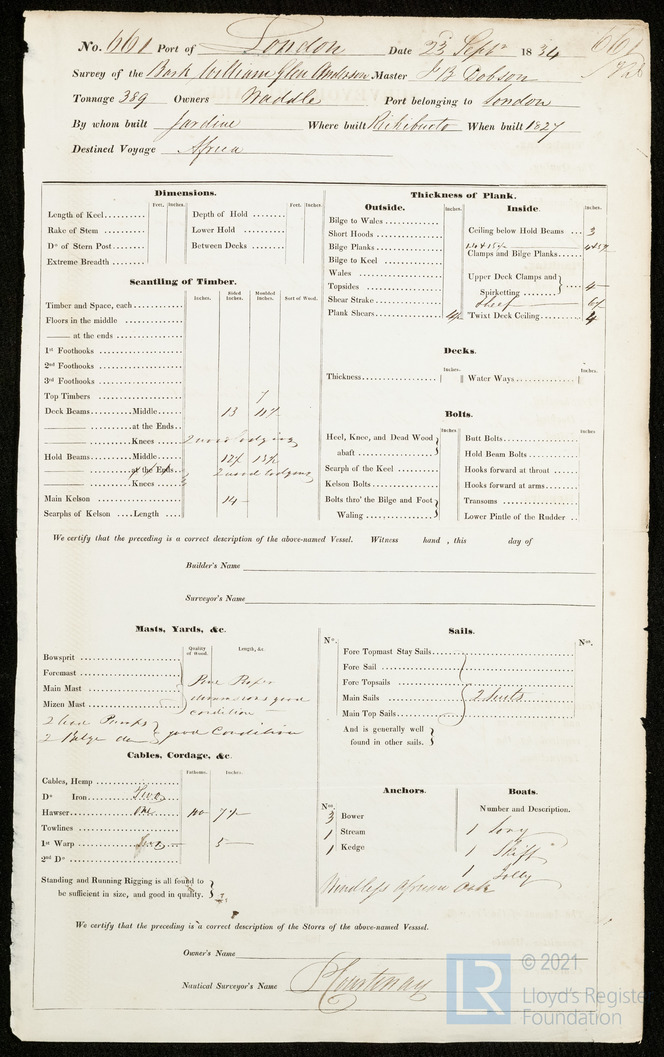 No. 661 Port of London Date 23 Sept 1834 661
Survey of the Bark William Glen Anderson Master J B Dobson
Tonnage 389 Owners Waddle Port belonging to London
By whom built Jardine Where built Richibucto When built 1827
Destined Voyage Africa
Dimensions.
Feet. Inches. Feet. Inches.
Length of Keel Depth of Hold
Rake of Stem Lower Hold
Do of Stern Post Between Decks
Extreme Breadth
Scantling of Timber.
Inches. Sided Inches. Moulded Inches. Sort of Wood.
Timber and Space, each
Floors in the middle
—— at the ends
1st Foothooks
2nd Foothooks
3rd Foothooks
Top Timbers 7
Deck Beams Middle 13
—— at the Ends
—— Knees 2 wood lodging
Hold Beams Middle
—— at the Ends 2 wood lodging
—— Knees
Main Kelson 14
Scarphs of Kelson Length
Thickness of Plank.
Outside. Inches.
Bilge to Wales
Short Hoods
Bilge Planks
Bilge to Keel
Wales
Topsides
Shear Strake
Plank Shears
Inside. Inches.
Ceiling below Hold Beams 3
Clamps and Bilge Planks
Upper Deck Clamps and Spirketting 4
Shelf 6
'Twixt Deck Ceiling 4
Decks.
Inches. Inches.
Thickness Water Ways
Bolts.
Inches. Inches.
Heel, Knee, and Dead Wood abaft
Scarph of the Keel
Kelson Bolts
Bolts thro' the Bilge and Foot Waling
Butt Bolts
Hold Beam Bolts
Hooks forward at throat
Hooks forward at arms
Transoms
Lower Pintle of the Rudder
We certify that the preceding is a correct description of the above-named Vessel. Witness hand , this day of
Builder's Name
Surveyor's Name
Masts, Yards, &c.
Quality of Wood. Length, &c.
Bowsprit
Foremast
Main Mast
Mizen Mast
Pine Proper
dimensions good
condition
2 Pumps
2 Bilge do good Condition
Sails.
No. Nos.
Fore Topmast Stay Sails
Fore Sail
Fore Topsails
Main Sails 2 suits
Main Top Sails
And is generally well found in other sails.
Cables, Cordage, &c.
Fathoms. Inches.
Cables, Hemp
Do Iron Two
Hawser One
Towlines
1st Warp Two 5
2nd Do
Standing and Running Rigging is all found to be sufficient in size, and good in quality.
Anchors.
Nos.
3 Bower
1 Stream
1 Kedge
Boats.
Number and Description.
1 Long
1 Skiff
1 Jolly
Windlass African Oak
We certify that the preceding is a correct description of the Stores of the above-named Vesssel.
Owner's Name
Nautical Surveyor's Name P Courtenay
LR © 2021
Lloyd's Register
Foundation